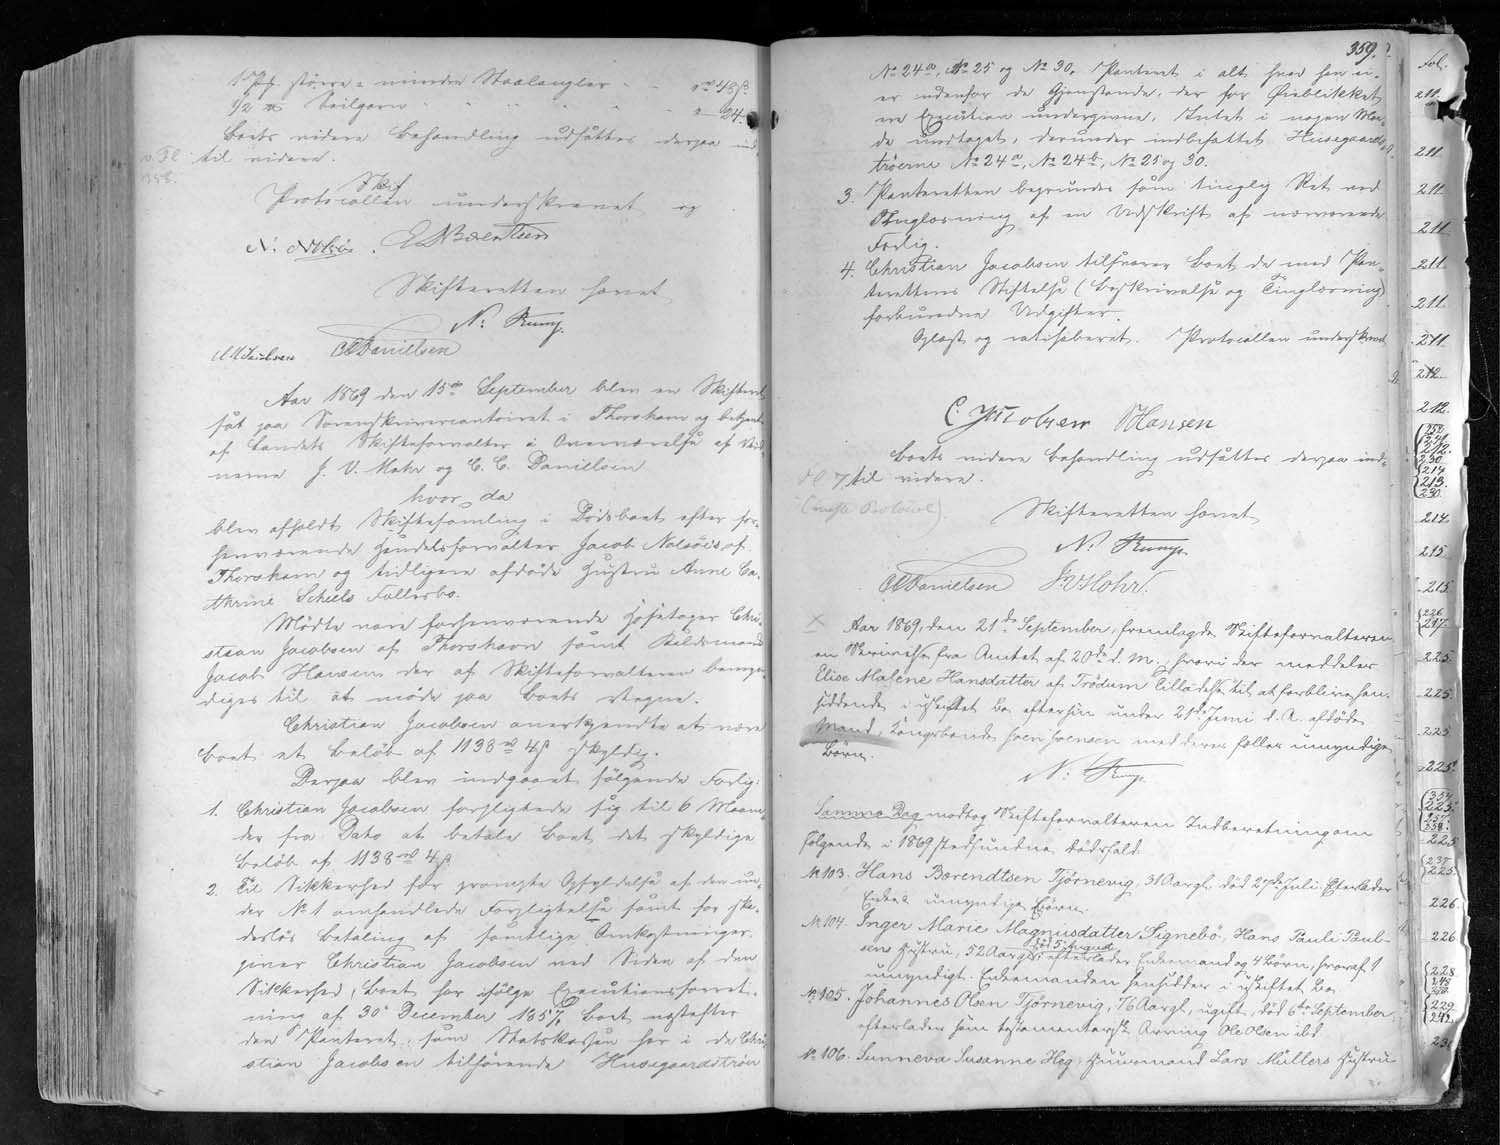 1 Pk større & mindre Staalangler " " rd 48 ß
1/2 " Seilgarn " " " " " 24.
Boets videre Behandling udsattes derpaa ind-
v. Fl. til videre.
358.
Skif
Protocollen underskrevet og
N: Nolsøe. E Bærentsen
Skifteretten hævet
N: Rump.
M Jacobsen CC Danielsen
Aar 1869 den 15de September blev en Skifteret
sat paa Sorenskrivercontoiret i Thorshavn og betjent
af Landets Skifteforvalter i Overværelse af Vid-
nerne J. V. Mohr og C. C. Danielsen
hvor da
blev afholdt Skiftesamling i Dødsboet efter for-
henværende Handelsforvalter Jacob Nolsøe af
Thorshavn og tidligere afdøde Hustru Anne Ca-
thrine Schiels Fallesbo.
Mødte vare forhenværende Chri-
stian Jacobsen af Thorshavn samt Kuldsmand
Jacob Hansen der af Skifteforvalteren bemyn-
diges til at møde paa Boets Vegne.
Christian Jacobsen anerkjendte at være
Boet et Beløb af 1138 rd 4 ß skyldig.
Derpaa blev indgaaet følgende Forlig:
1. Christian Jacobsen forpligtede sig til 6 Maane-
der fra Dato at betale Boet det skyldige
Beløb af 1138 rd 4 ß.
2. Til Sikkerhed for prompte Opfyldelse af den un-
der No 1 omhandlede Forpligtelse samt for ska-
desløs Betaling af samtlige Omkostninger
giver Christian Jacobsen ved Siden af den
Sikkerhed, Boet har ifølge Executionsforret-
ning af 30 December 1857, Boet næstefter
den Panteret, som Statskassen har i de Chri-
stian Jacobsen tilhørende Huusegaardstrøer
359.
No 24a, No 25 og No 30, Panteret i alt hvad han ei-
er udenfor de Gjenstande, der for Øieblikket
ere Execution undergivne, Intet i nogen Maa-
de undtaget, derunder indbefattet Huusegaards-
trøerne No 24a, No 24b, No 25 og 30.
3. Panteretten begrundes som tinglig Ret ved
Tinglæsning af en Udskrift af nærværende
Forlig.
4. Christian Jacobsen tilsvarer Boet de med Pan-
terettens Stiftelse (Beskrivelse og Tinglæsning)
forbundne Udgifter.
Oplæst og ratihaberet. Protocollen underskrevet
C. Jacobsen Hansen
Boets videre Behandling udsattes derpaa ind-
Fl. 7, til videre.
(næste Protocol).
Skifteretten hævet
N: Rump.
CC Danielsen J. V. Mohr.
X Aar 1869, den 21de September, fremlagde Skifteforvalteren
en Skrivelse fra Amtet af 20de d. M. hvori der meddeles
Elise Malene Hansdatter af Trødum Tilladelse til at forblive hen-
siddende i uskiftet Bo efter sin under 21de Juni d. A. afdøde
Mand, Kongsbonde Joen Joensen med deres fælles umyndige
Børn.
N: Rump.
Samme Dag modtog Skifteforvalteren Indberetning om
følgende i 1869 stedfundne Dødsfald.
No 103. Hans Barendtsen Tjørnevig, 31 Aar gl. død 27de Juli. Efterlader
Enke & umyndige Børn.
No 104. Inger Marie Magnusdatter Signebø, Hans Pauli Paul-
død 5 August
sens Hustru, 52 Aar gl. efterlader Enkemand og 4 Børn, hvoraf 1
umyndigt. Enkemanden hensidder i uskiftet Bo.
No 105. Johannes Olsen Tjørnevig, 76 Aar gl, ugift, død 6te September
efterlader som testamentarisk Arving Ole Olsen ibd.
No 106. Sunneva Susanne Heg, Huusmand Lars Müllers Hustru
Fol.
211.
211
211
211
211
211.
211
212.
212.
252
241
212.
230
214
213.
230
214
215
215
226
217
225
225
225
225
354
225
357
358
225
237
225
226
226
228
248
350
229
242